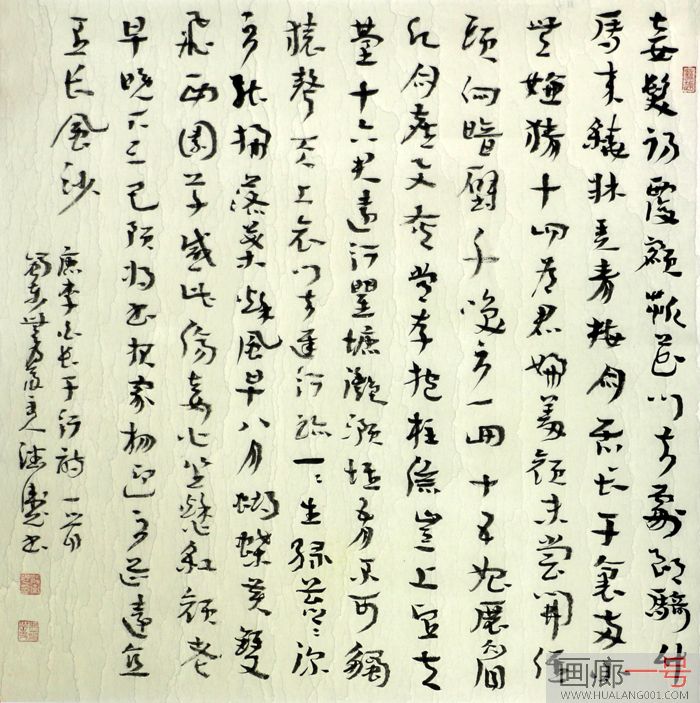 妾髮初覆額折花門前劇郎騎竹
馬來繞牀弄青梅同居長干里兩小
無嫌猜十四為君婦羞顏未嘗開低
頭向暗壁千喚不一回十五始展眉
同塵與灰常存抱柱信豈上望夫
臺十六君遠行瞿塘灩澦堆五月不可觸
猿聲天上哀門前遲行跡一〻生綠苔〻深
不能掃落葉秋風早八月蝴蝶黃雙
飛西園草感此傷妾心坐愁紅顏老
早晚下三巴預將書報家相迎不道遠直
至長風沙
唐李白長干行詩一首
蜀東主人書
画廊一号
WWW.HUALANG001.COM